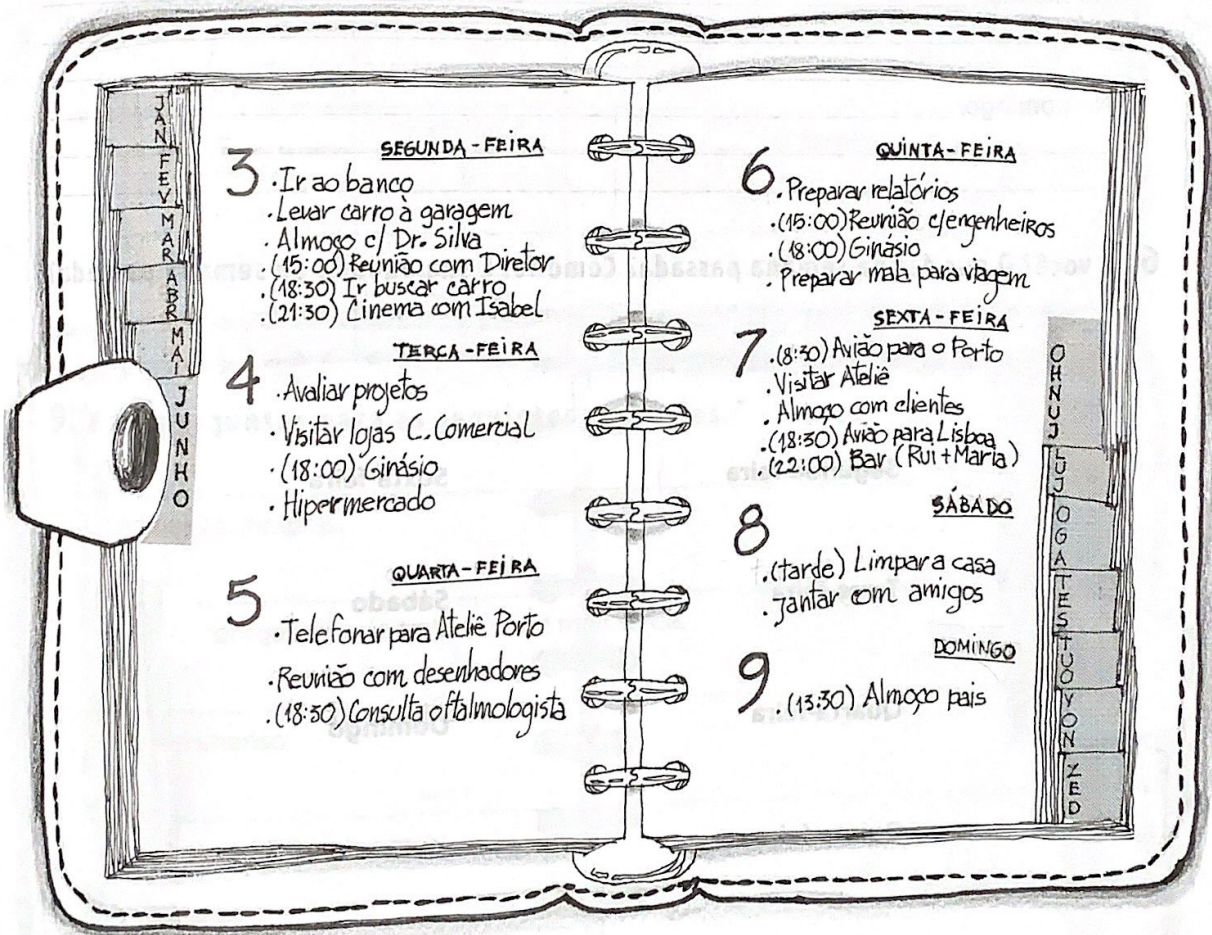 JAN
FEV
MAR
ABR
MAI
JUNHO
3 SEGUNDA-FEIRA
. Ir ao banco
. Levar carro à garagem
. Almoço c/ Dr. Silva
. (15:00) Reunião com Diretor
. (18:30) Ir buscar carro
. (21:30) Cinema com Isabel
4 TERÇA-FEIRA
. Avaliar projetos
. Visitar lojas C. Comercial
. (18:00) Ginásio
. Hipermercado
5 QUARTA-FEIRA
. Telefonar para Ateliê Porto
. Reunião com desenhadores
. (18:30) Consulta oftalmologista
6 QUINTA-FEIRA
. Preparar relatórios
. (15:00) Reunião c/engenheiros
. (18:00) Ginásio
. Preparar mala para viagem
7 SEXTA-FEIRA
. (8:30) Avião para o Porto
. Visitar Ateliê
. Almoço com clientes
. (18:30) Avião para Lisboa
. (22:00) Bar (Rui+Maria)
8 SÁBADO
. (tarde) Limpar a casa
. Jantar com amigos
9 DOMINGO
. (13:30) Almoço pais
OHNUJ
LUJ
OGA
TES
TUO
VON
ZED